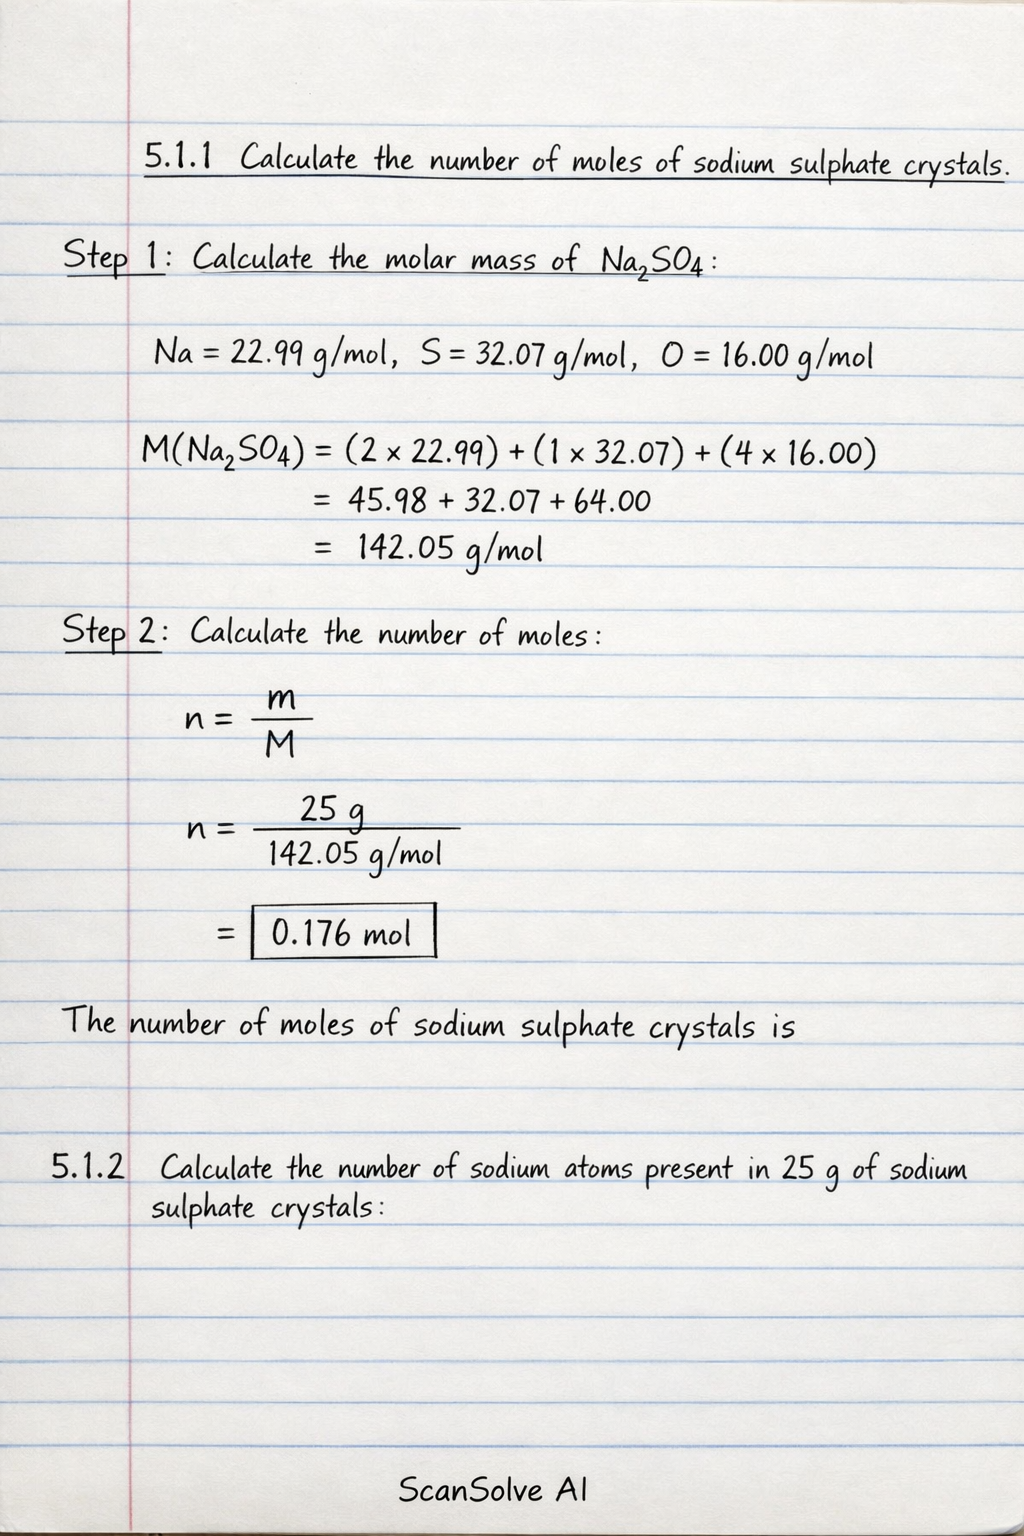 5.1.1 Calculate the number of moles of sodium sulphate crystals.
Step 1: Calculate the molar mass of Na₂SO₄:
Na = 22.99 g/mol, S = 32.07 g/mol, O = 16.00 g/mol
M(Na₂SO₄) = (2 × 22.99) + (1 × 32.07) + (4 × 16.00)
= 45.98 + 32.07 + 64.00
= 142.05 g/mol
Step 2: Calculate the number of moles:
n = m / M
n = 25 g / 142.05 g/mol
= 0.176 mol
The number of moles of sodium sulphate crystals is
5.1.2 Calculate the number of sodium atoms present in 25 g of sodium
sulphate crystals:
ScanSolve AI